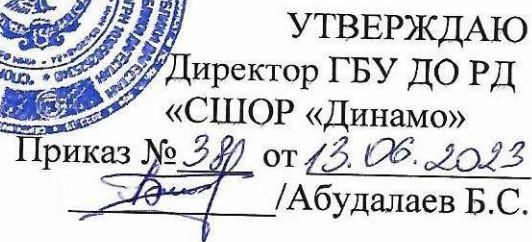 УТВЕРЖДАЮ
Директор ГБУ ДО РД
«СШОР «Динамо»
Приказ № от 13.06.2023
/Абудалаев Б.С.